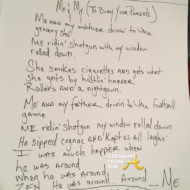 Me & My (To Bury Your Parents)
Me and my mother, drivin' to the
grocery sto'
Me ridin' shotgun with my window
rolled down.
She smokes cigarettes and gets what
she gets by hustlin' harder
Rollers and a nightgown.
Me and my father, drivin' to the football
game
Me ridin' shotgun my window rolled down
He sipped cognac and kept us all laughin'
I was much happier when
he was around
when he was around
he was around. Around
Me